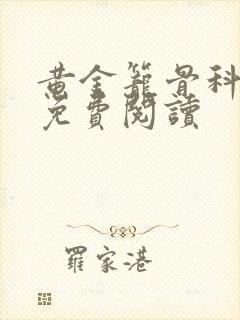 黃金籠骨科
免費閱讀
羅家港